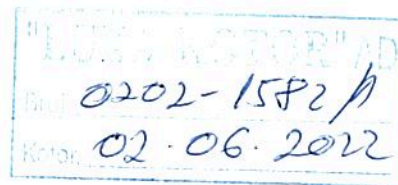 "LUKA KOTOR" AD
Broj 0202-1582/1
Kotor, 02.06.2022